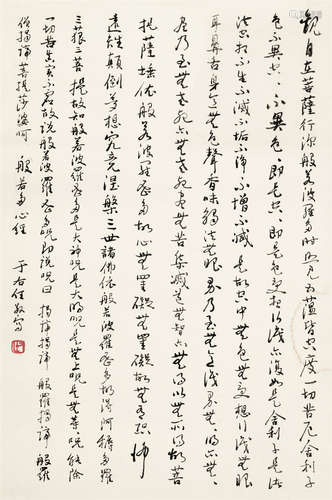 觀自在菩薩行深般若波羅蜜多時照見五蘊皆空度一切苦厄舍利子
色不異空空不異色色即是空空即是色受想行識亦復如是舍利子是諸
法空相不生不滅不垢不淨不增不減是故空中無色無受想行識無眼
耳鼻舌身意無色聲香味觸法無眼界乃至無意識界無無明亦無無明
盡乃至無老死亦無老死盡無苦集滅道無智亦無得以無所得故菩
提薩埵依般若波羅蜜多故心無罣礙無罣礙故無有恐怖
遠離顛倒夢想究竟涅槃三世諸佛依般若波羅蜜多故得阿耨多羅
三藐三菩提故知般若波羅蜜多是大神咒是大明咒是無上咒是無等等咒能除
一切苦真實不虛故說般若波羅蜜多咒即說咒曰 揭諦揭諦 般羅揭諦 般羅
僧揭諦菩提莎婆訶 般若多心經 于右任敬寫